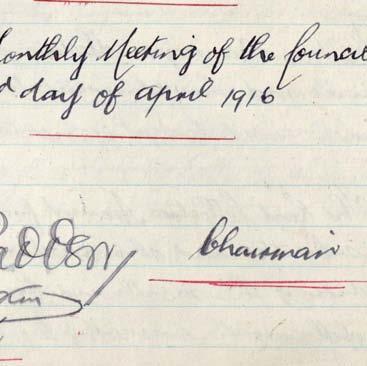 Monthly Meeting of the Council
day of april 1916
Chairman